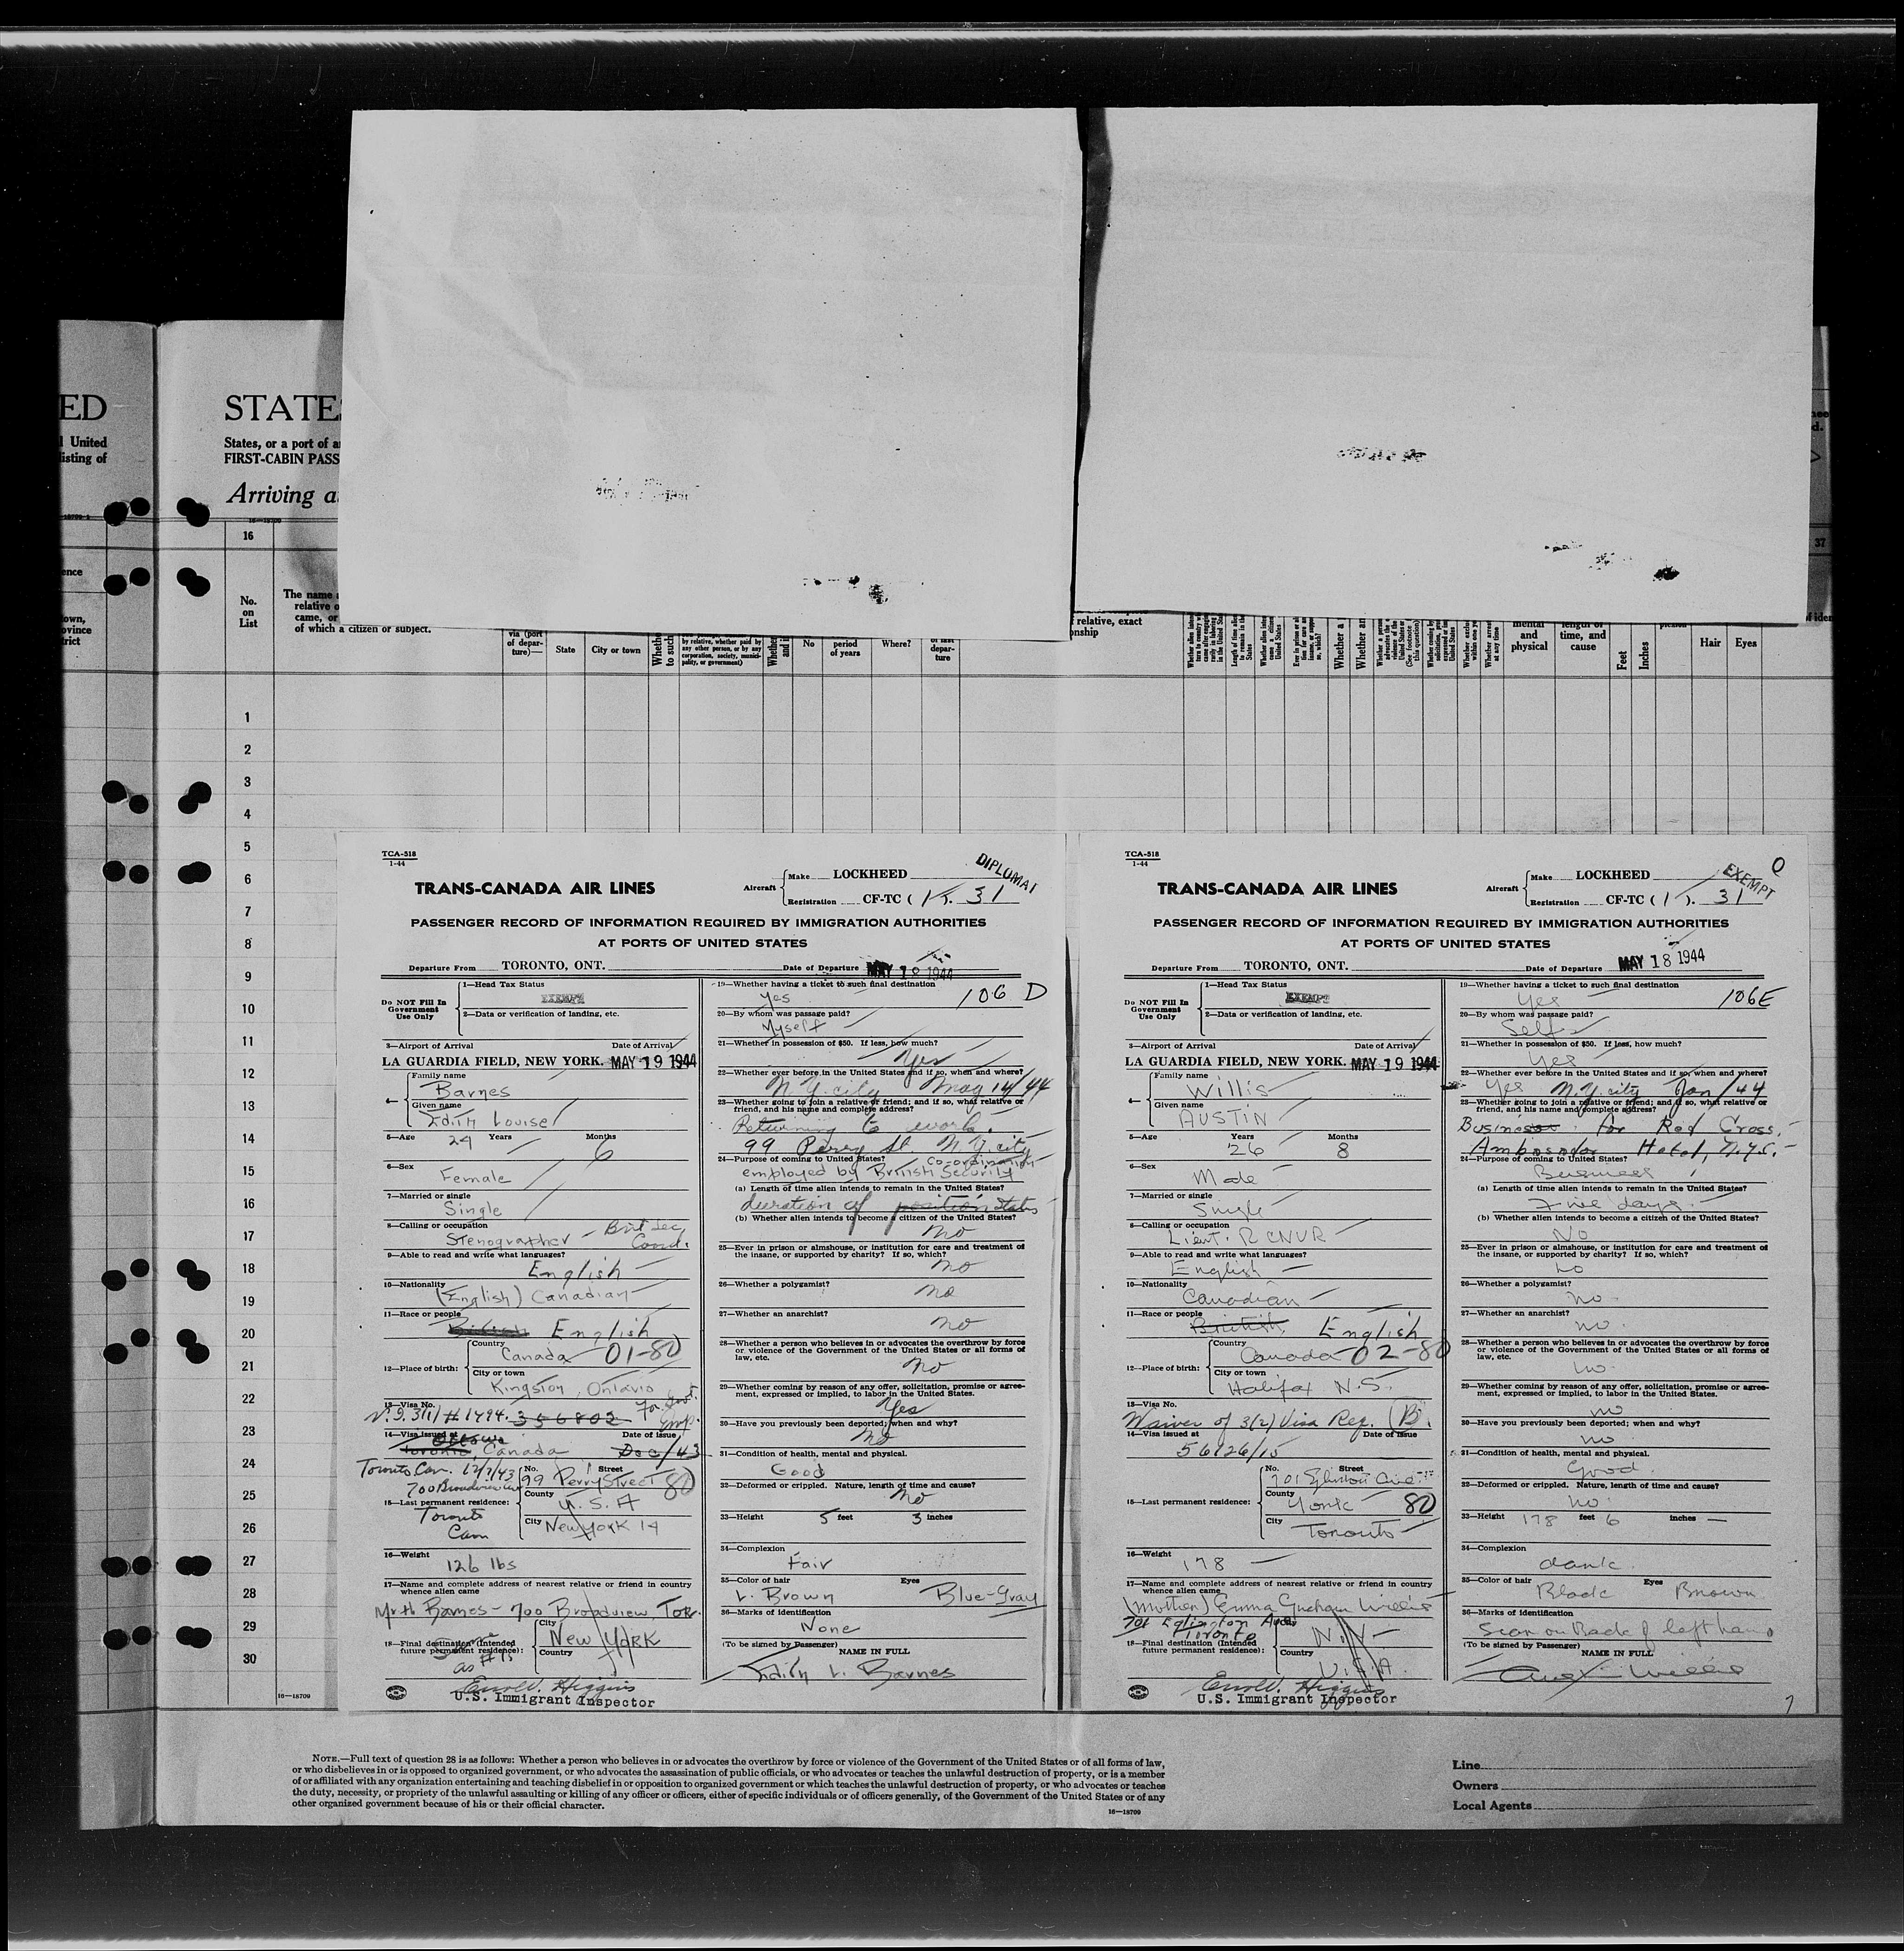 ED
l United
listing of
STATE
States, or a port of a
FIRST-CABIN PASS
Arriving a
16
37
No.
on
List
The name
relative o
came, or
of which a citizen or subject.
via (port
of depar-
ture)—
State
City or town
by relative, whether paid by
any other person, or by any
corporation, society, munici-
pality, or government)
No
period
of years
Where?
of last
depar-
ture
f relative, exact
onship
mental
and
physical
length of
time, and
cause
Feet
Inches
Hair
Eyes
1
2
3
4
5
6
7
8
9
10
11
12
13
14
15
16
17
18
19
20
21
22
23
24
25
26
27
28
29
30
16—18709
TCA-518
1-44
TRANS-CANADA AIR LINES
Aircraft
Make LOCKHEED
Registration CF-TC (15. 31
DIPLOMAT
PASSENGER RECORD OF INFORMATION REQUIRED BY IMMIGRATION AUTHORITIES
AT PORTS OF UNITED STATES
Departure From TORONTO, ONT.
Date of Departure MAY 18 1944
Do NOT Fill In
Government
Use Only
1—Head Tax Status
EXEMPT
2—Data or verification of landing, etc.
3—Airport of Arrival Date of Arrival
LA GUARDIA FIELD, NEW YORK. MAY 19 1944
4—
Family name
Barnes
Given name
Edith Louise
5—Age 29 Years Months 6
6—Sex
Female
7—Married or single
Single
8—Calling or occupation
Stenographer - Brit Sec
Coord.
9—Able to read and write what languages?
English
10—Nationality
(English) Canadian
11—Race or people
British English
12—Place of birth:
Country
Canada 01-80
City or town
Kingston, Ontario
13—Visa No.
V.S. 3(1) # 1494. 356802 For Govt.
Emp.
14—Visa issued at Date of issue
Ottawa
Toronto Canada Dec/43
Toronto Can. 12/7/43
No. Street
99 Perry Street 80
700 Broadview Ave
15—Last permanent residence:
Toronto
Can
County
U.S.A
City New York 14
16—Weight
126 lbs
17—Name and complete address of nearest relative or friend in country
whence alien came
Mr H Barnes - 700 Broadview, Tor.
18—Final destination (Intended
future permanent residence):
Same
as #15
City
New York
Country
Errol V. Higgins
U.S. Immigrant Inspector
19—Whether having a ticket to such final destination
Yes 106 D
20—By whom was passage paid?
Myself
21—Whether in possession of $50. If less, how much?
Yes
22—Whether ever before in the United States and if so, when and where?
N.Y. city May 14/44
23—Whether going to join a relative or friend; and if so, what relative or
friend, and his name and complete address?
Returning to work.
99 Perry St N.Y. city
24—Purpose of coming to United States?
employed by British Security Co-ordination
(a) Length of time alien intends to remain in the United States?
duration of position status
(b) Whether alien intends to become a citizen of the United States?
no
25—Ever in prison or almshouse, or institution for care and treatment of
the insane, or supported by charity? If so, which?
no
26—Whether a polygamist?
no
27—Whether an anarchist?
no
28—Whether a person who believes in or advocates the overthrow by force
or violence of the Government of the United States or all forms of
law, etc.
no
29—Whether coming by reason of any offer, solicitation, promise or agree-
ment, expressed or implied, to labor in the United States.
Yes
30—Have you previously been deported; when and why?
no
31—Condition of health, mental and physical.
Good
32—Deformed or crippled. Nature, length of time and cause?
no
33—Height 5 feet 3 inches
34—Complexion
Fair
35—Color of hair Eyes
L. Brown Blue-Gray
36—Marks of identification
None
(To be signed by Passenger)
NAME IN FULL
Edith L. Barnes
TCA-518
1-44
TRANS-CANADA AIR LINES
Aircraft
Make LOCKHEED
Registration CF-TC (15. 31
EXEMPT
PASSENGER RECORD OF INFORMATION REQUIRED BY IMMIGRATION AUTHORITIES
AT PORTS OF UNITED STATES
Departure From TORONTO, ONT.
Date of Departure MAY 18 1944
Do NOT Fill In
Government
Use Only
1—Head Tax Status
EXEMPT
2—Data or verification of landing, etc.
3—Airport of Arrival Date of Arrival
LA GUARDIA FIELD, NEW YORK. MAY 19 1944
4—
Family name
Willis
Given name
AUSTIN
5—Age Years 26 Months 8
6—Sex
Male
7—Married or single
Single
8—Calling or occupation
Lieut. RCNVR
9—Able to read and write what languages?
English
10—Nationality
Canadian
11—Race or people
British English
12—Place of birth:
Country
Canada 02-80
City or town
Halifax N.S.
13—Visa No.
Waiver of 3(2) Visa Req. (B.
14—Visa issued at Date of issue
56126/15
No. Street
701 Eglinton Ave
15—Last permanent residence:
County
York 80
City
Toronto
16—Weight
178
17—Name and complete address of nearest relative or friend in country
whence alien came
(Mother) Emma Graham Willis
701 Eglinton Ave
Toronto
18—Final destination (Intended
future permanent residence):
N.Y.
Country
U.S.A.
Errol V. Higgins
U.S. Immigrant Inspector
19—Whether having a ticket to such final destination
Yes 106E
20—By whom was passage paid?
Self
21—Whether in possession of $50. If less, how much?
Yes
22—Whether ever before in the United States and if so, when and where?
Yes N.Y. city Jan/44
23—Whether going to join a relative or friend; and if so, what relative or
friend, and his name and complete address?
Business for Red Cross.
Ambassador Hotel, N.Y.C.
24—Purpose of coming to United States?
Business
(a) Length of time alien intends to remain in the United States?
Five days
(b) Whether alien intends to become a citizen of the United States?
No
25—Ever in prison or almshouse, or institution for care and treatment of
the insane, or supported by charity? If so, which?
no
26—Whether a polygamist?
no
27—Whether an anarchist?
no.
28—Whether a person who believes in or advocates the overthrow by force
or violence of the Government of the United States or all forms of
law, etc.
no.
29—Whether coming by reason of any offer, solicitation, promise or agree-
ment, expressed or implied, to labor in the United States.
no
30—Have you previously been deported; when and why?
no
31—Condition of health, mental and physical.
Good
32—Deformed or crippled. Nature, length of time and cause?
no.
33—Height 178 feet 6 inches —
34—Complexion
dark
35—Color of hair Eyes
Black Brown
36—Marks of identification
Scar on Back of left hand
(To be signed by Passenger)
NAME IN FULL
Austin Willis
NOTE.—Full text of question 28 is as follows: Whether a person who believes in or advocates the overthrow by force or violence of the Government of the United States or of all forms of law,
or who disbelieves in or is opposed to organized government, or who advocates the assassination of public officials, or who advocates or teaches the unlawful destruction of property, or is a member
of or affiliated with any organization entertaining and teaching disbelief in or opposition to organized government or which teaches the unlawful destruction of property, or who advocates or teaches
the duty, necessity, or propriety of the unlawful assaulting or killing of any officer or officers, either of specific individuals or of officers generally, of the Government of the United States or of any
other organized government because of his or their official character.
16—18709
Line
Owners
Local Agents